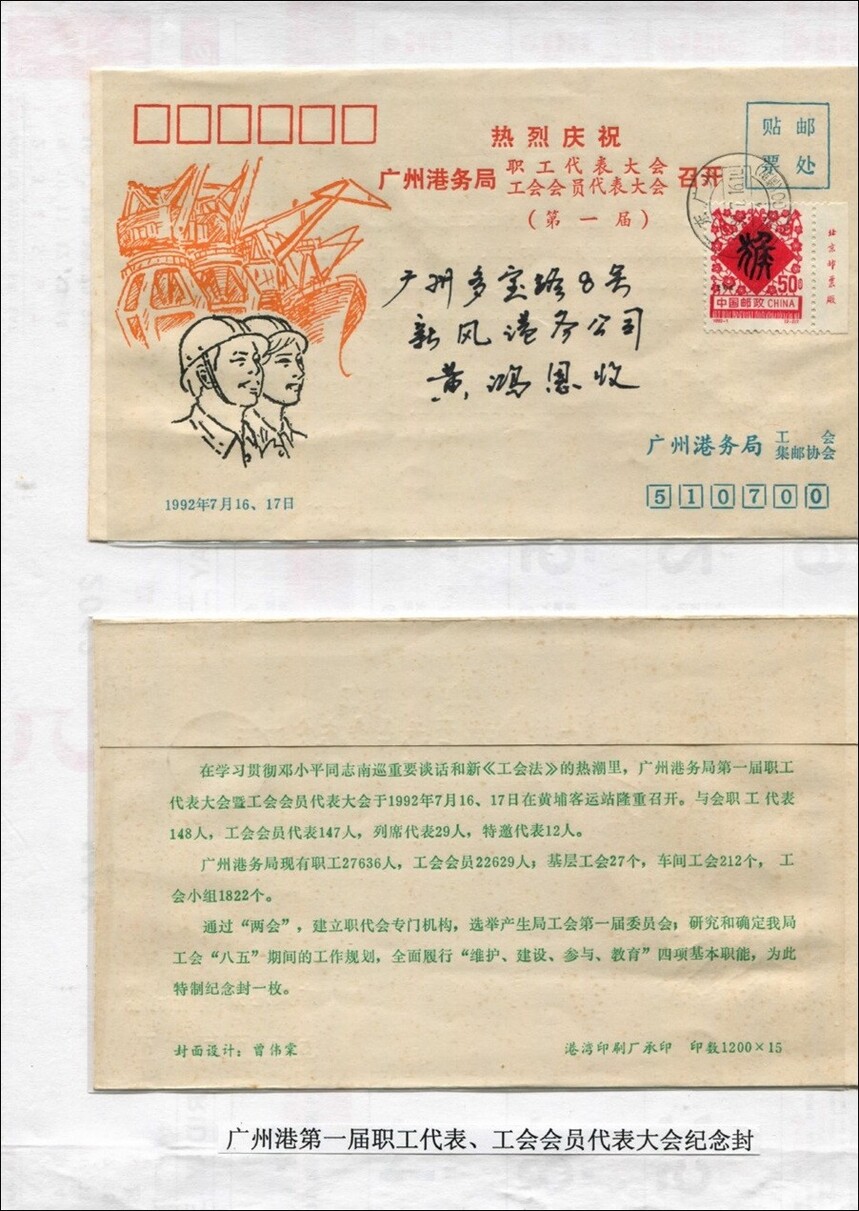 热烈庆祝
广州港务局 职工代表大会 工会会员代表大会 召开
(第一届)
贴邮
票处
猴
50分
中国邮政 CHINA
北京邮票厰
广州多宝路8号
新风港务公司
黄鸿恩收
广州港务局 工会 集邮协会
510700
1992年7月16、17日
在学习贯彻邓小平同志南巡重要谈话和新《工会法》的热潮里，广州港务局第一届职工
代表大会暨工会会员代表大会于1992年7月16、17日在黄埔客运站隆重召开。与会职工代表
148人，工会会员代表147人，列席代表29人，特邀代表12人。
广州港务局现有职工27636人，工会会员22629人；基层工会27个，车间工会212个，工
会小组1822个。
通过“两会”，建立职代会专门机构，选举产生局工会第一届委员会；研究和确定我局
工会“八五”期间的工作规划，全面履行“维护、建设、参与、教育”四项基本职能，为此
特制纪念封一枚。
封面设计：曾伟棠
港湾印刷厂承印 印数1200×15
广州港第一届职工代表、工会会员代表大会纪念封